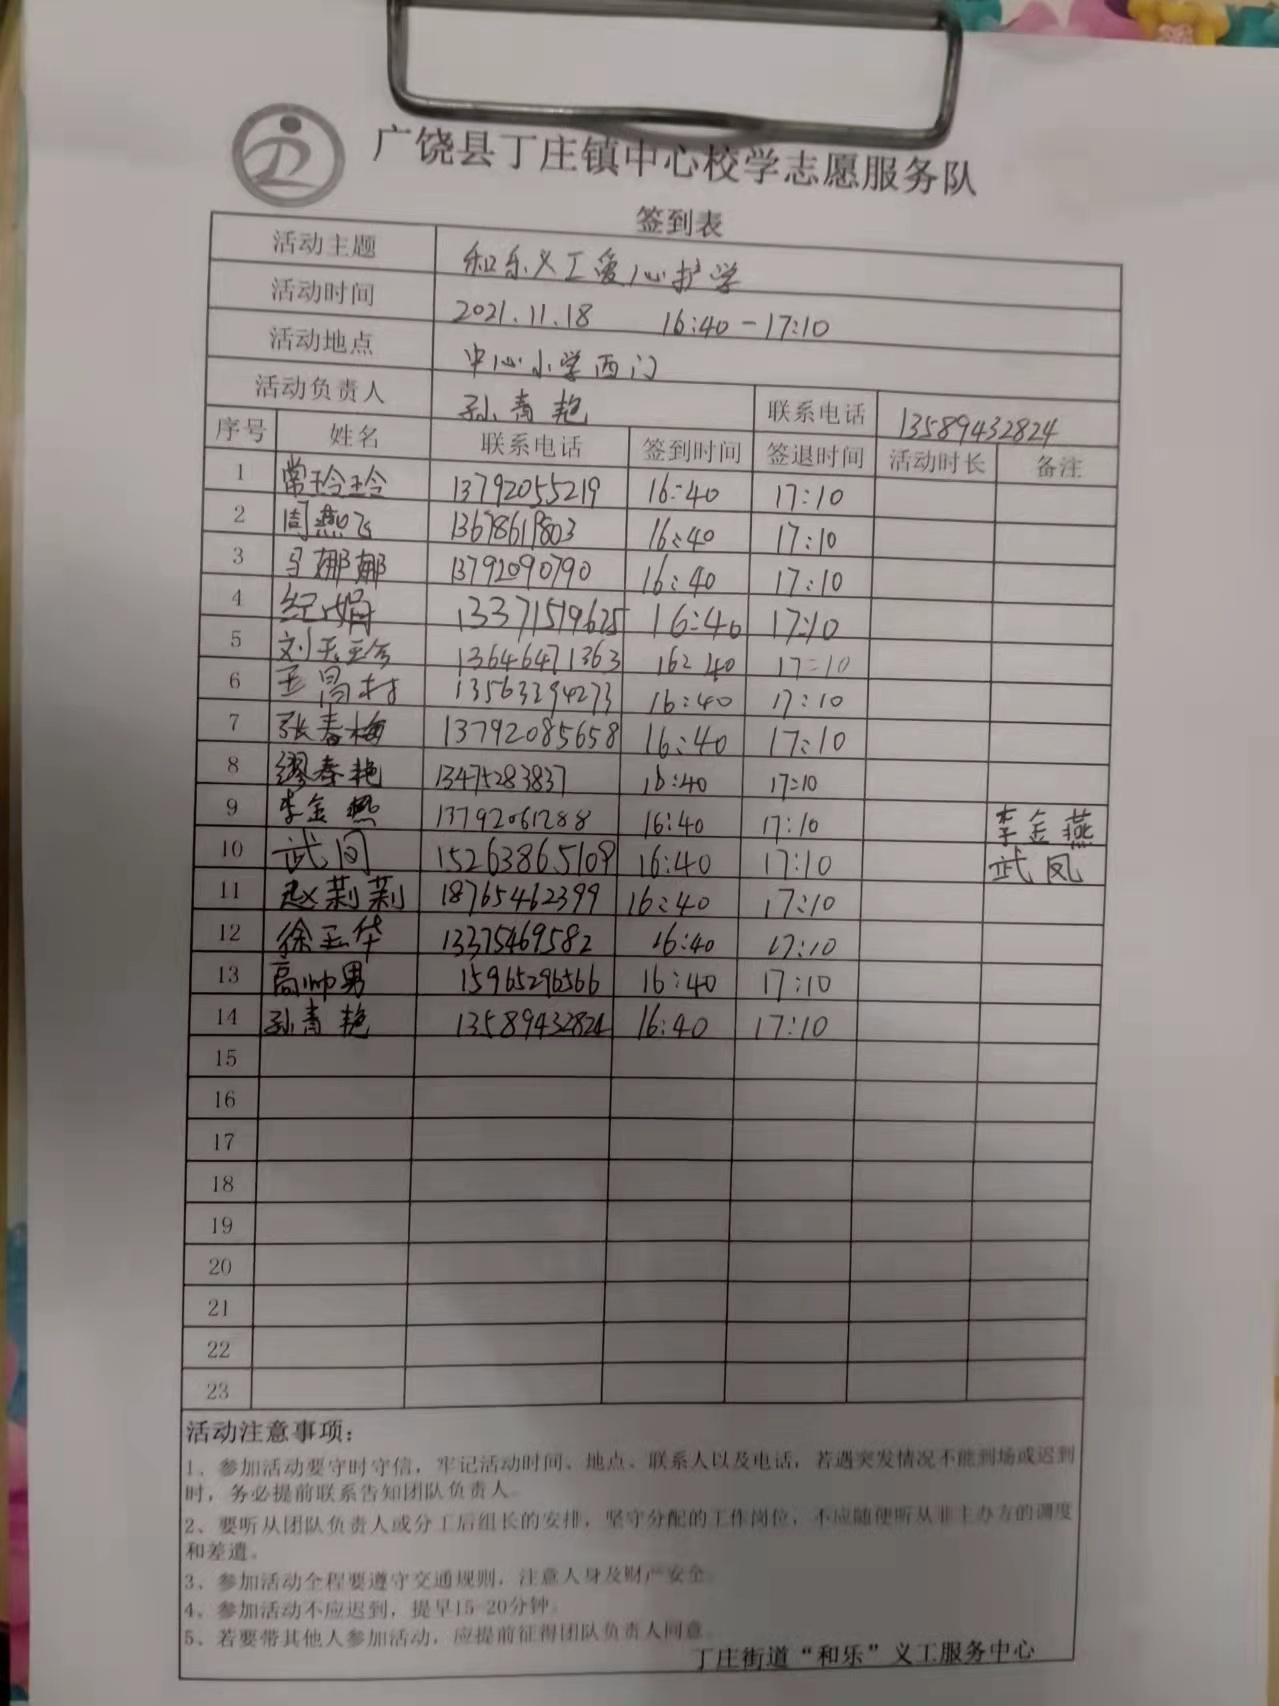 广饶县丁庄镇中心校学志愿服务队
签到表
活动主题 和乐义工爱心护学
活动时间 2021.11.18 16:40-17:10
活动地点 中心小学西门
活动负责人 孙青艳 联系电话 13589432824
序号 姓名 联系电话 签到时间 签退时间 活动时长 备注
1 常玲玲 13792055219 16:40 17:10
2 周燕飞 16:40 17:10
3 马娜娜 13792090790 16:40 17:10
4 纪娟 13371519625 16:40 17:10
5 13646471363 16:40 17:10
6 13563394273 16:40 17:10
7 张春梅 13792085658 16:40 17:10
8 缪春艳 13475283837 16:40 17:10
9 李金燕 13792061288 16:40 17:10 李金燕
10 15263865109 16:40 17:10 武凤
11 赵莉莉 18765462399 16:40 17:10
12 徐玉华 13375469582 16:40 17:10
13 高帅男 15965296566 16:40 17:10
14 孙青艳 13589432824 16:40 17:10
15
16
17
18
19
20
21
22
23
活动注意事项：
1、参加活动要守时守信，牢记活动时间、地点、联系人以及电话，若遇突发情况不能到场或迟到
时，务必提前联系告知团队负责人。
2、要听从团队负责人或分工后组长的安排，坚守分配的工作岗位，不应随便听从非主办方的调度
和差遣。
3、参加活动全程要遵守交通规则，注意人身及财产安全。
4、参加活动不应迟到，提早15-20分钟。
5、若要带其他人参加活动，应提前征得团队负责人同意。
丁庄街道“和乐”义工服务中心